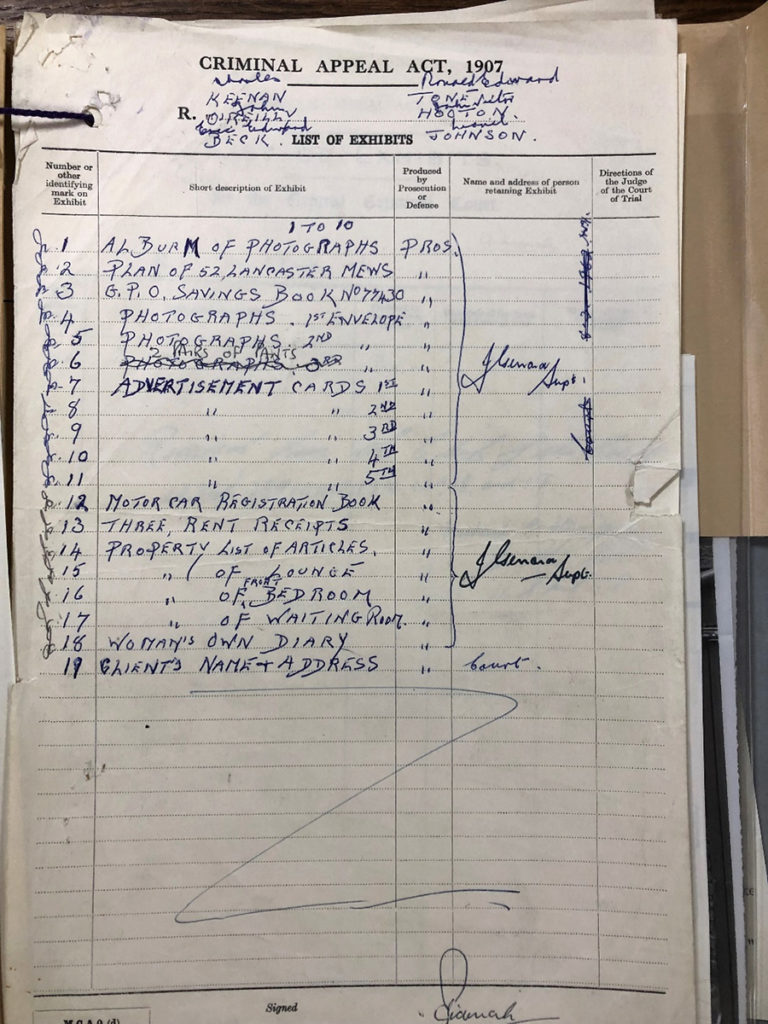 CRIMINAL APPEAL ACT, 1907
Charles Ronald Edward
KEENAN TONE
R. John Victor
O'REILLY HOGTON
Edward
BECK. LIST OF EXHIBITS JOHNSON.
Number or other identifying mark on Exhibit Short description of Exhibit Produced by Prosecution or Defence Name and address of person retaining Exhibit Directions of the Judge of the Court of Trial
1 TO 10
1 ALBURM OF PHOTOGRAPHS PROS.
2 PLAN OF 52, LANCASTER MEWS "
3 G.P.O. SAVINGS BOOK No 77430 "
4 PHOTOGRAPHS. 1ST ENVELOPE "
5 PHOTOGRAPHS. 2ND "
2 PAIRS OF PANTS
6 PHOTOGRAPHS. 3RD "
7 ADVERTISEMENT CARDS 1ST " Supt.
8 " " 2ND "
9 " " 3RD "
10 " " 4TH "
11 " " 5TH "
12 MOTOR CAR REGISTRATION BOOK "
13 THREE, RENT RECEIPTS "
14 PROPERTY LIST OF ARTICLES. "
15 " OF LOUNGE " Supt.
FRONT
16 " OF BEDROOM "
17 " OF WAITING ROOM. "
18 WOMAN'S OWN DIARY "
19 CLIENT'S NAME + ADDRESS " Court.
Signed